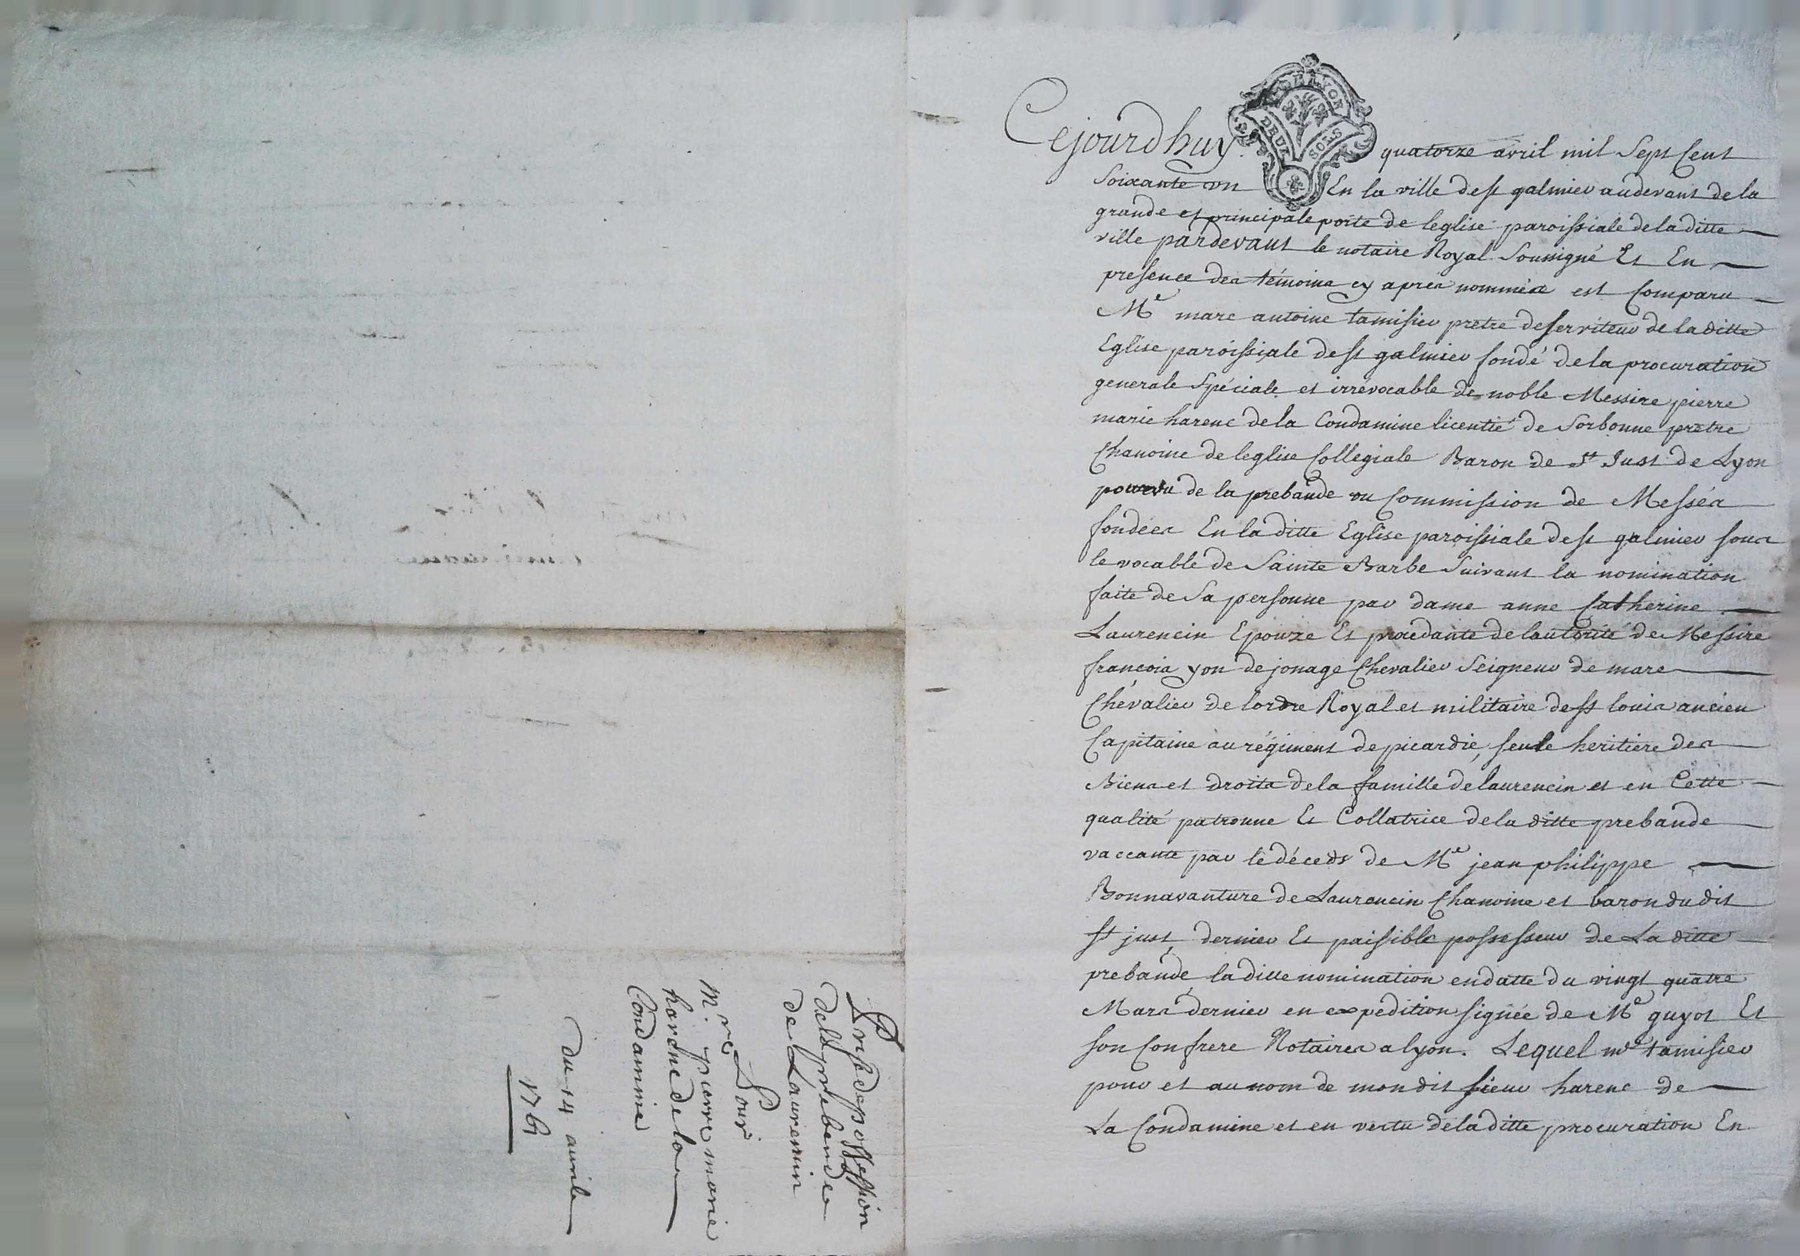 Cejourdhuy quatorze avril mil Sept Cent
Soixante un En la ville de st galmier audevant de la
grande et principale porte de leglise paroissiale de la ditte
ville pardevant le notaire Royal Soussigné Et En
presence des témoins cy apres nommés est Comparu
Me marc antoine tamisier pretre deserviteur de la ditte
Eglise paroissiale de st galmier fondé de la procuration
generale Spéciale et irrevocable de noble Messire pierre
marie harenc de la Condamine licentié de Sorbonne pretre
Chanoine de leglise Collegiale Baron de st Just de Lyon
pourvu de la prebande ou Commission de Messes
fondées En la ditte Eglise paroissiale de st galmier sous
le vocable de Sainte Barbe Suivant la nomination
faite de Sa personne par dame anne Catherine
Laurencin Epouze Et procedante de lautorité de Messire
francois yon de jonage Chevalier Seigneur de mare
Chevalier de lordre Royal et militaire de st louis ancien
Capitaine au régiment de picardie, seule heritiere des
Biens et droits de la famille de laurencin et en Cette
qualité patronne Et Collatrice de la ditte prebande
vaccante par le décéds de Me jean philippe
Bonnavanture de Laurencin Chanoine et baron du dit
st just, dernier Et paisible possesseur de La ditte
prebande, la ditte nomination en datte du vingt quatre
Mars dernier en expedition signée de Me guyot Et
son Confrere Notaires a lyon. Lequel me tamisier
pour et au nom de mon dit sieur harenc de
La Condamine et en vertu de la ditte procuration En
Prise de possession
de la prebende
de Laurencin
Pour
mre pierre marie
harenc de la
Condamine
du 14 avrile
1761
GEN DE LYON
DEUX SOLS